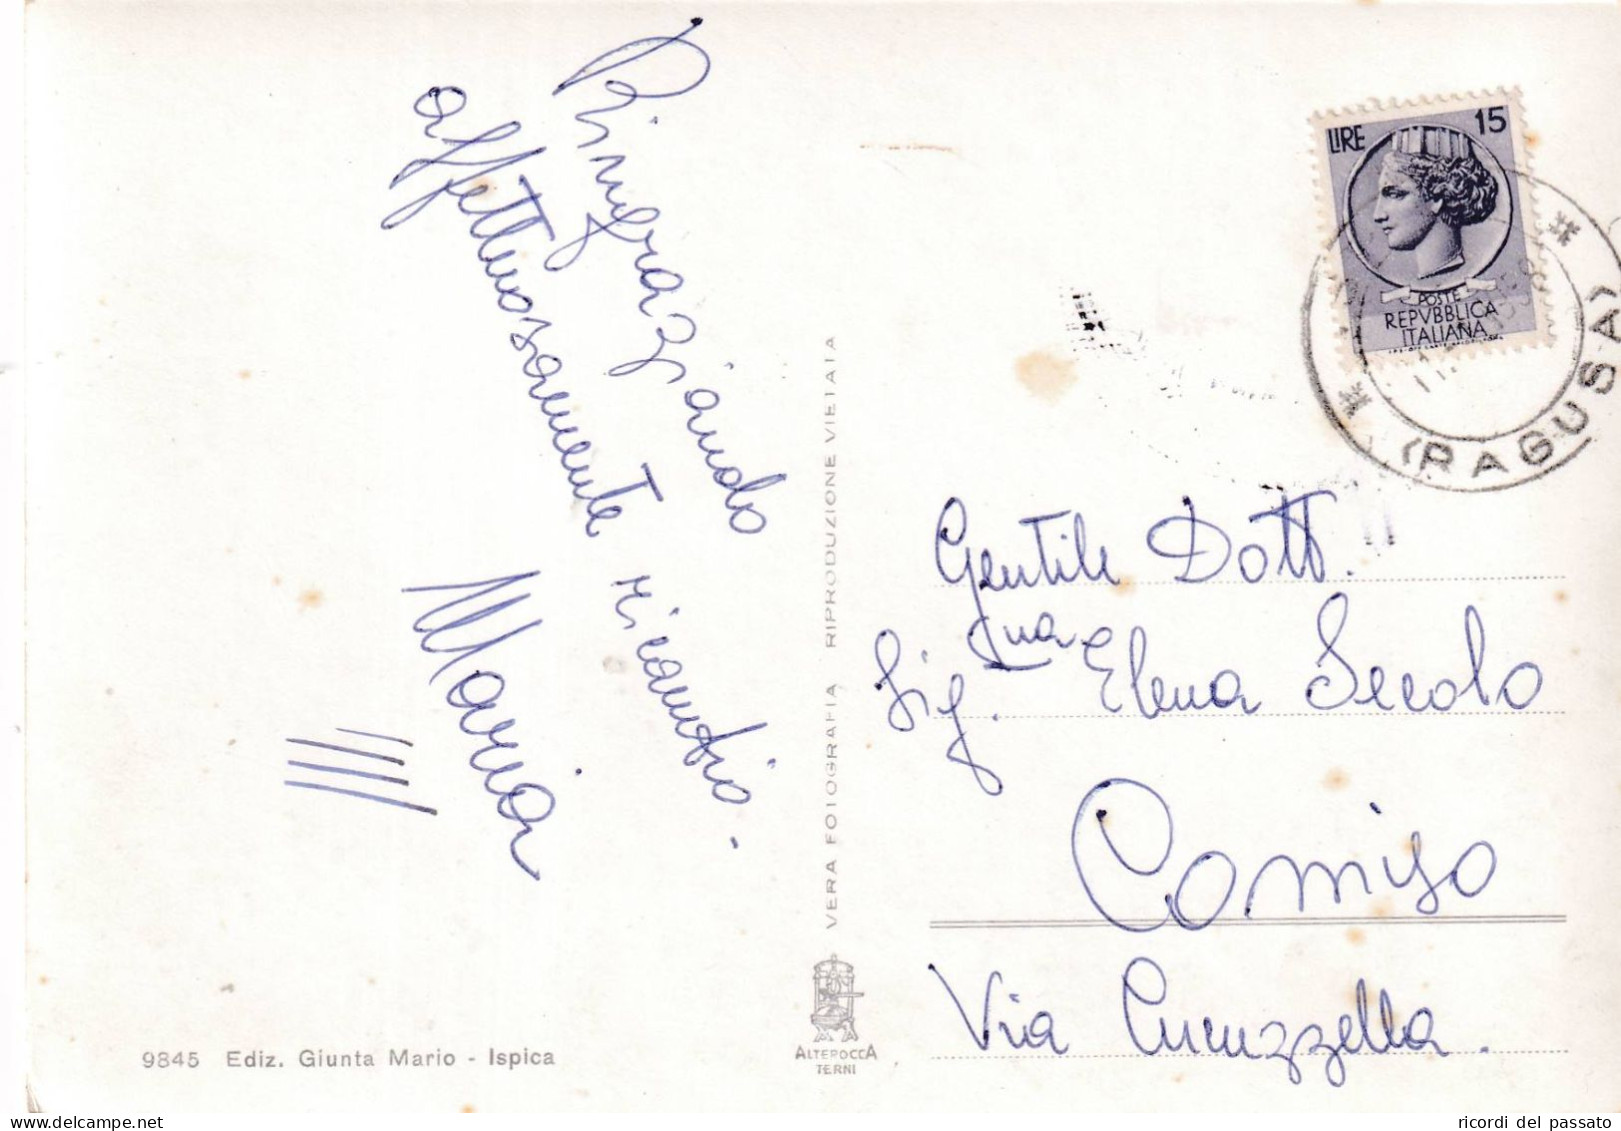 Ringraziando
affettuosamente ricambio.
Maria
VERA FOTOGRAFIA RIPRODUZIONE VIETATA
LIRE 15
POSTE
REPVBBLICA
ITALIANA
(RAGUSA)
Gentile Dott.
Sig.na Elena Secolo
Comiso
Via Cucuzzella.
9845 Ediz. Giunta Mario - Ispica
ALTEROCCA
TERNI
ricordi del passato